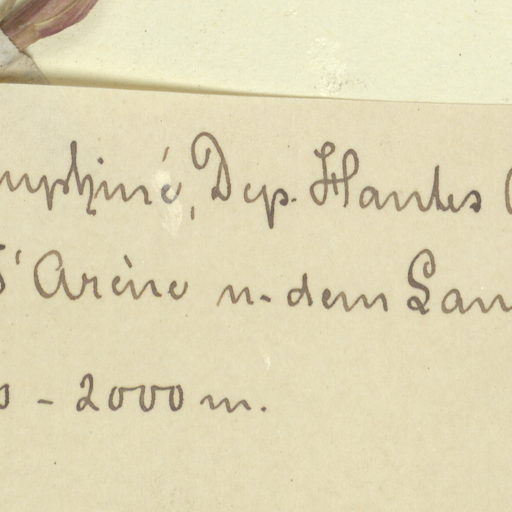 auphiné, Dep. Hautes
d'Arène u. dem Lau
– 2000 m.